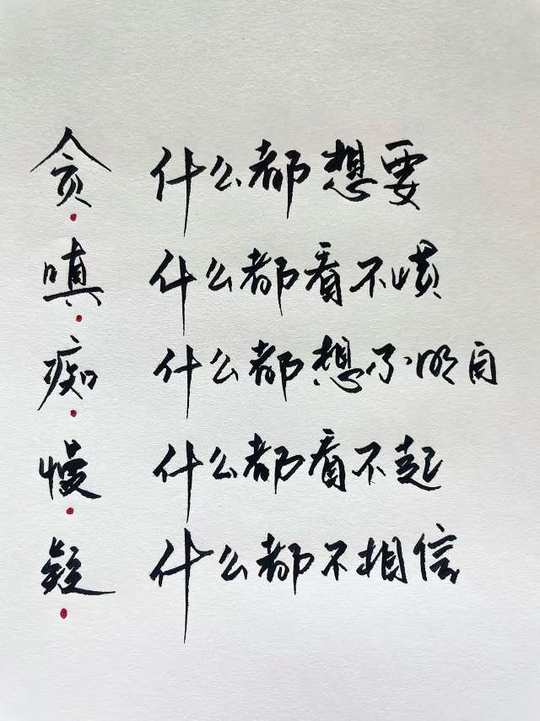 贪 什么都想要
嗔 什么都看不惯
痴 什么都想不明白
慢 什么都看不起
疑 什么都不相信